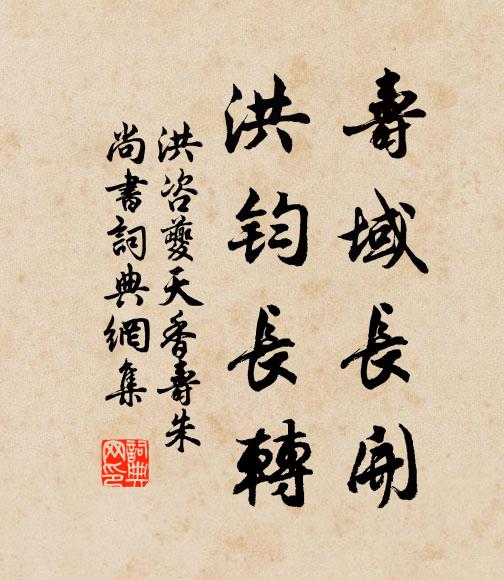 壽域長開
洪鈞長轉
洪咨夔天香壽朱
尚書詞典網集
詞典網印